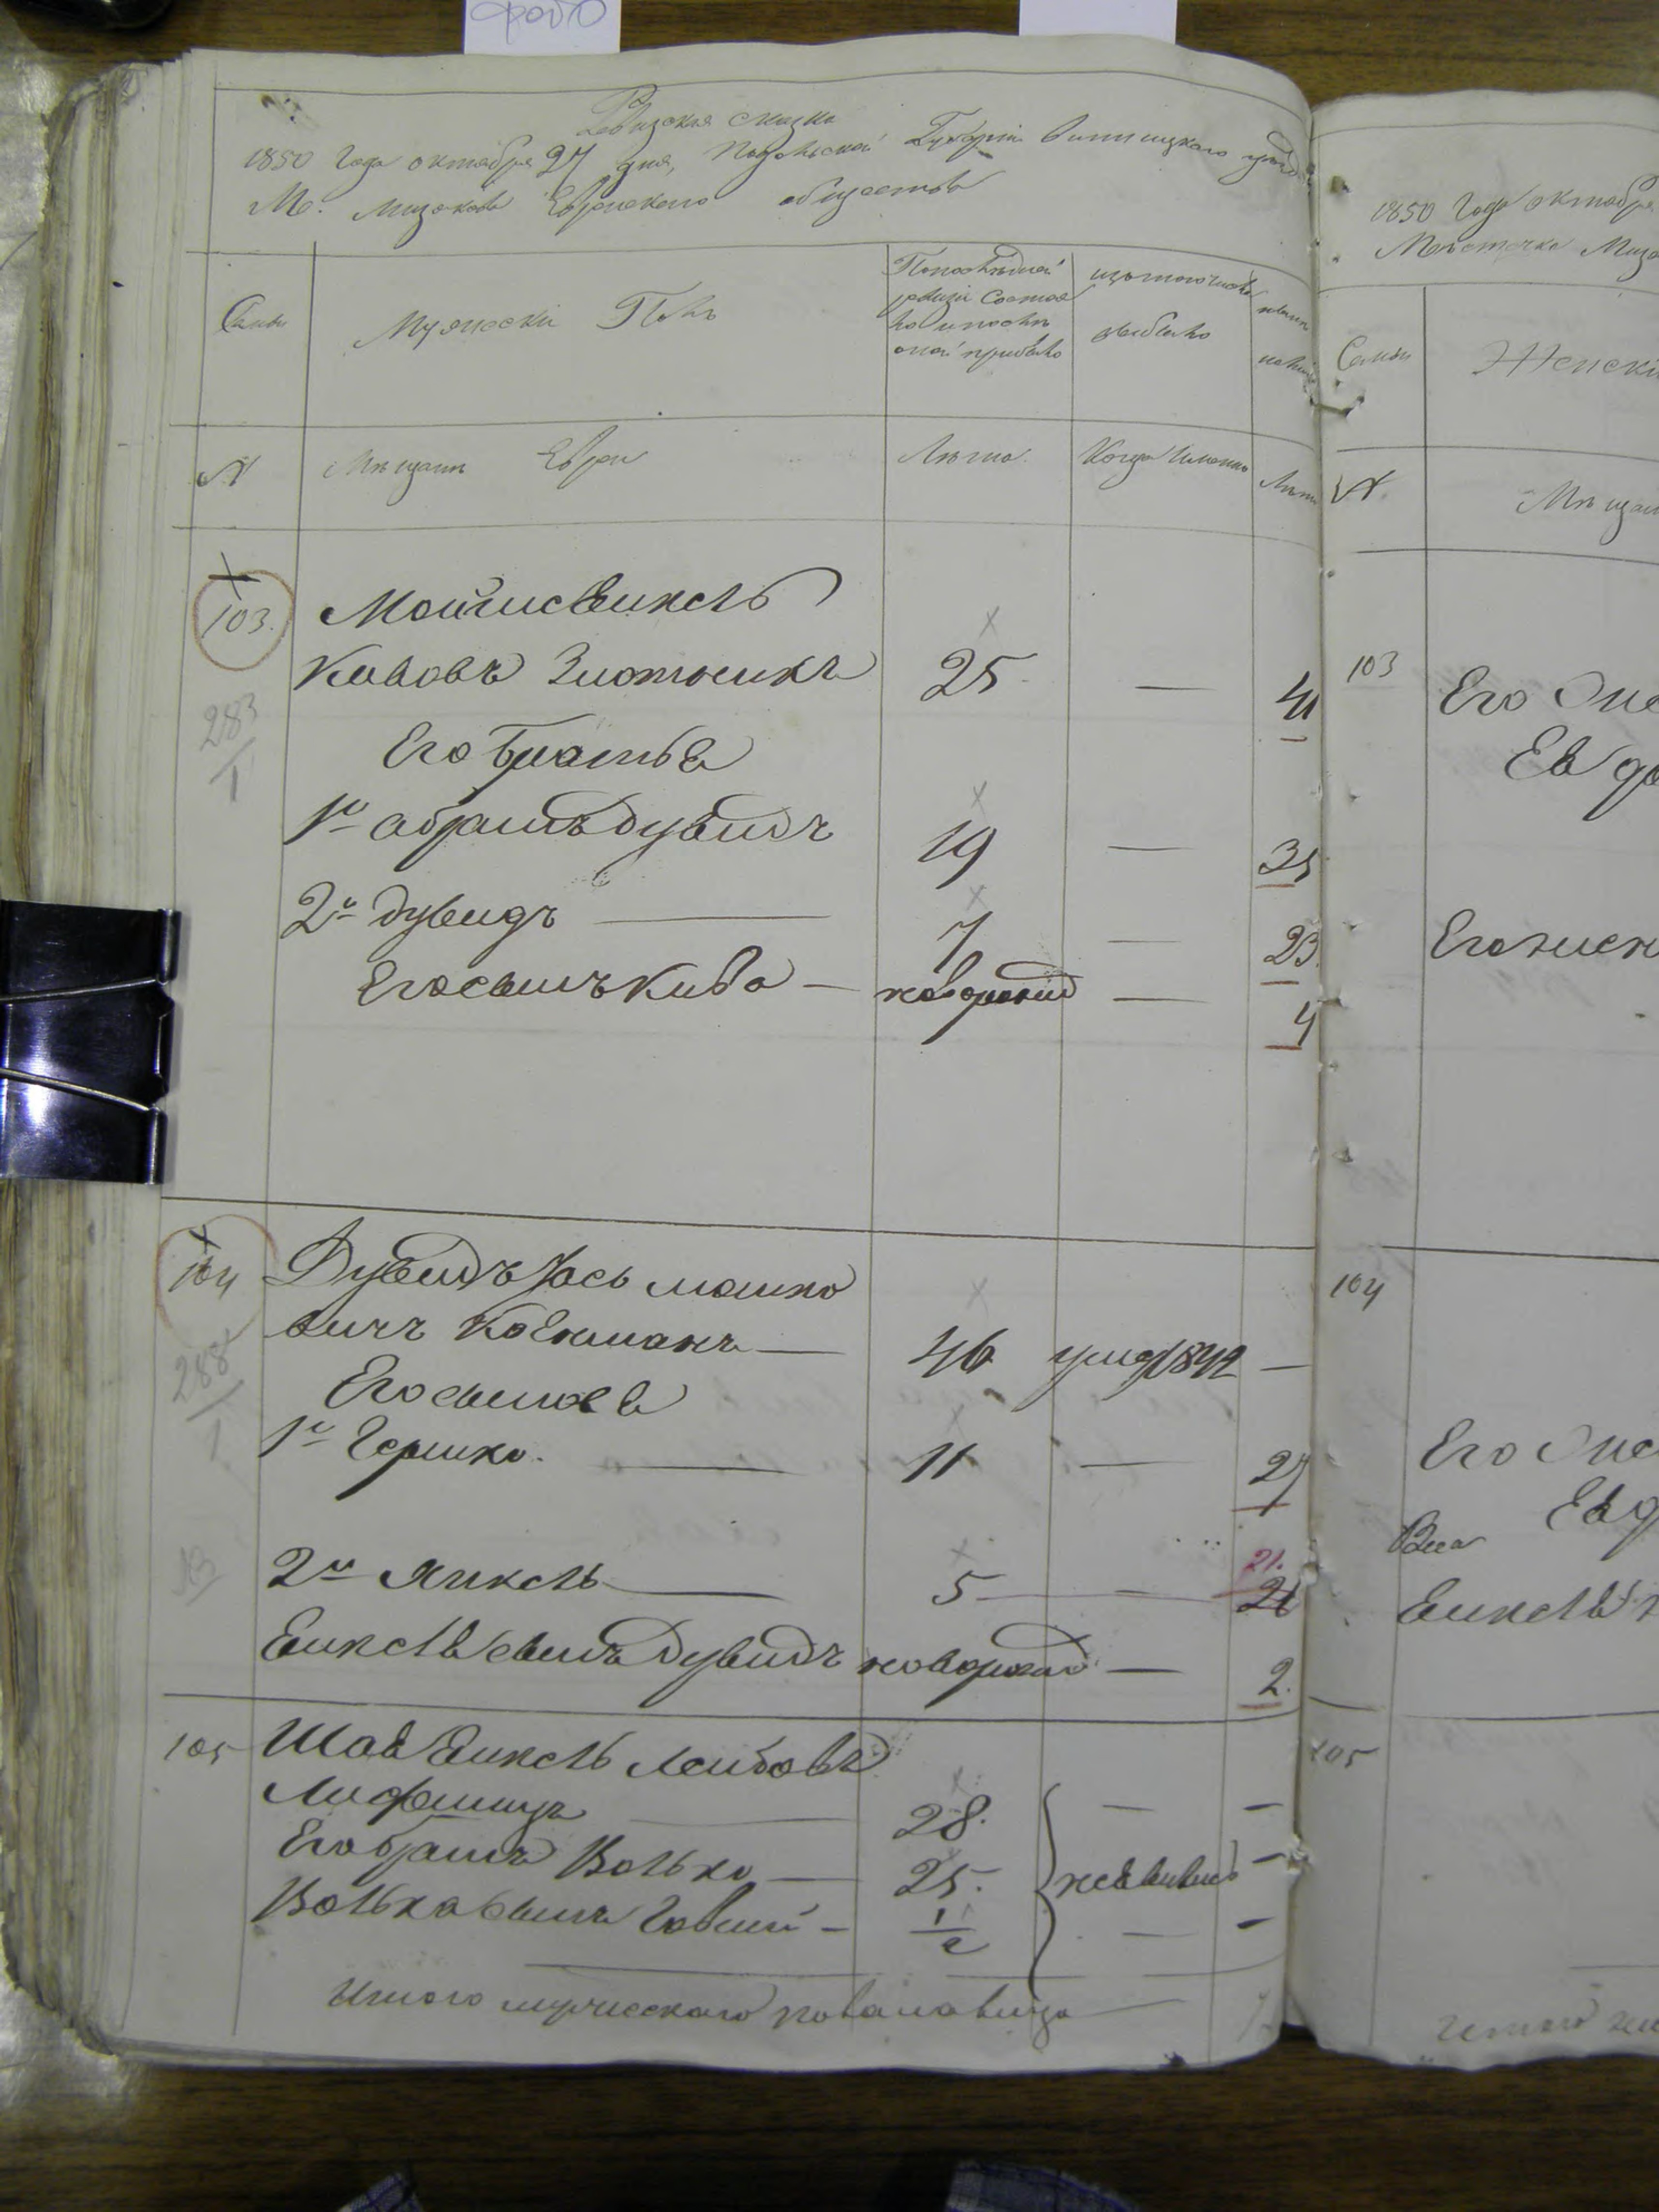 фото
Ревизская сказка
1850 года октября 27 дня, Подольской Губерніи Винницкого уезда
М. Мизякова Еврейского общества
Семьи
Мужескій Полъ
По последней
ревизіи состоя
ло и после
оной прибыло
изъ того числа
выбыло
ныне
на лицо
№
Мещане Евреи
Лета
Когда именно
Лета
103.
283
1
Мойше Винкель
Кивовъ 25 — 41
Его Братья
1й Абрамъ Дувидъ 19 — 35
2й Дувидъ — 7 — 23
Его сынъ Кива — новорожд — 4
104
288
1
Дувидъ Іось Мошко
вичъ — 46 умер 1842 —
Его сыновья
1й Гершко — 11 — 27
21.
2й Янкель — 5 — 21
Еинкеля сынъ Дувидъ новорожд — 2.
105 Шая Еинкель Лейбовъ
Лифшицъ — 28. — —
Его братъ Волько — 25. неявились —
Волька сынъ — 1/2 — —
Итого мужеского пола на лицо —
1850 года октября
Местечка Мизя
Семьи
Женскі
№
Мещан
103
Его Же
Ея до
Его жен
104
Его Же
Ея д
Еинкеля
105
Итого же